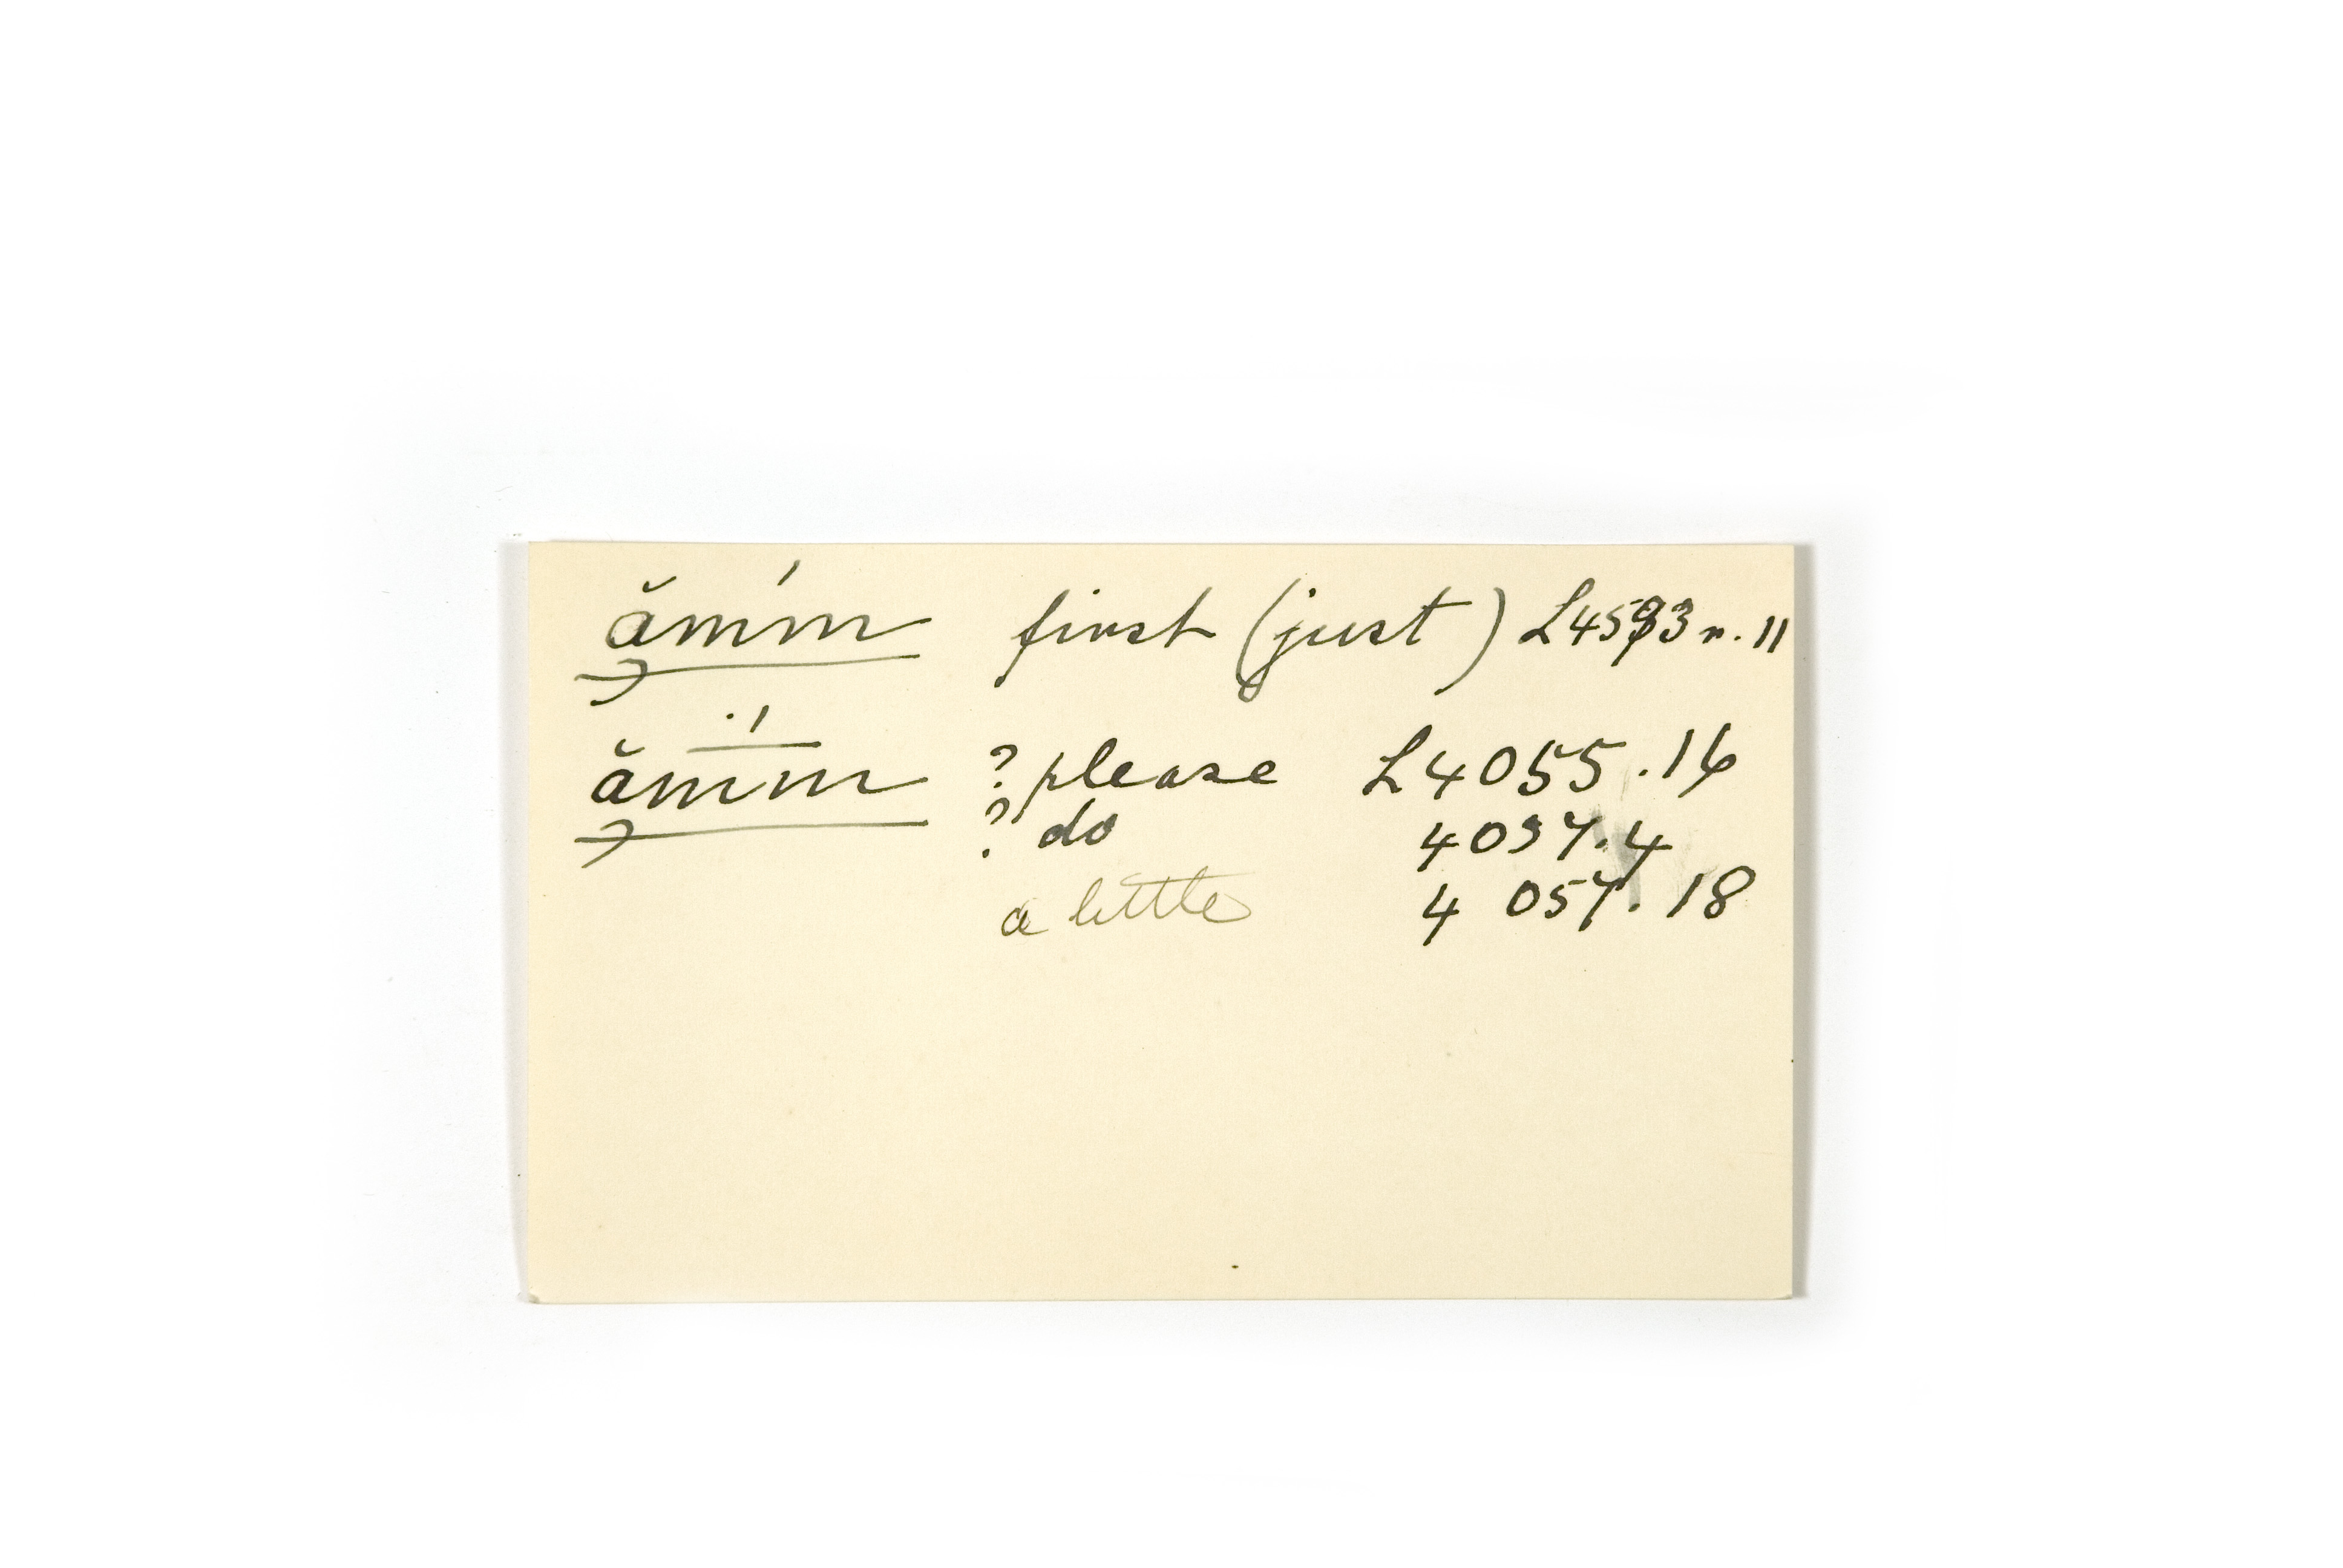 ămím first (just) L4593 n. 11
ămím ? please L4055.16
? do 4057.4
a little 4057.18